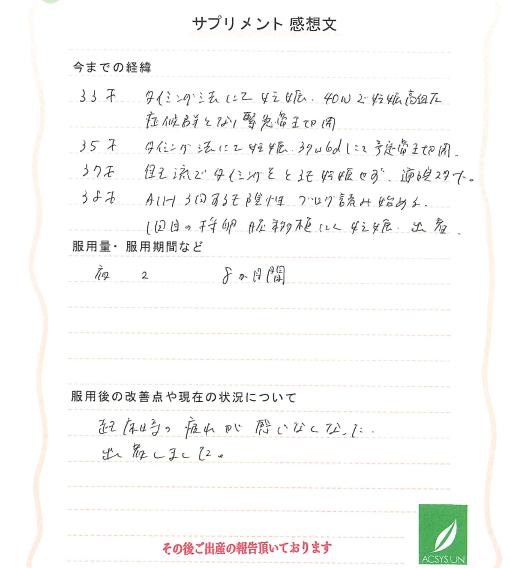 サプリメント 感想文
今までの経緯
33才 タイミング法にて妊娠. 40wで妊娠高血圧
症候群となり緊急帝王切開
35才 タイミング法にて妊娠 37w6dにて予定帝王切開.
37才 自己流でタイミングをとるも妊娠せず、通院スタート.
38才 AIH 3回するも陰性 ブログ読み始める.
1回目の採卵 胚移植にて妊娠. 出産.
服用量・服用期間など
夜 2 8ヵ月間
服用後の改善点や現在の状況について
起床時の疲れが感じなくなった.
出産しました。
その後ご出産の報告頂いております
ACSYSUN